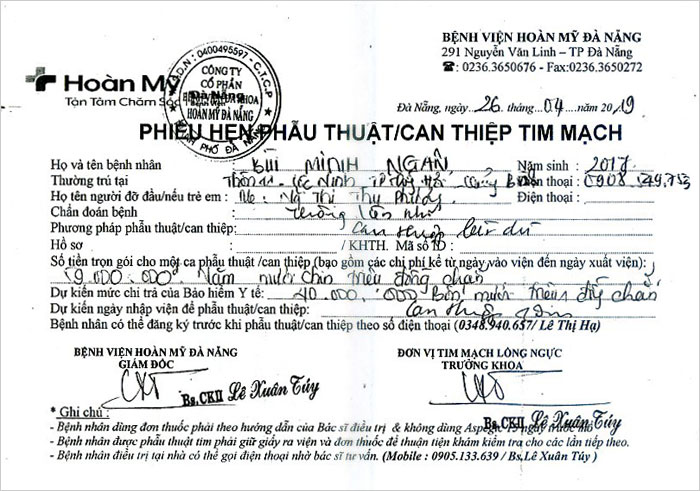 BỆNH VIỆN HOÀN MỸ ĐÀ NẴNG
291 Nguyễn Văn Linh – TP Đà Nẵng
☎: 0236.3650676 - Fax:0236.3650272
Hoàn Mỹ
Đà Nẵng
Tận Tâm Chăm Sóc
0400495597 - C.T.C.P
CÔNG TY
CỔ PHẦN
HOÀN MỸ ĐÀ NẴNG
PHỐ ĐÀ
Đà Nẵng, ngày 26 tháng 04 năm 2019
PHIẾU HẸN PHẪU THUẬT/CAN THIỆP TIM MẠCH
Họ và tên bệnh nhân BÙI MINH NGÂN Năm sinh : 2017
Thường trú tại Điện thoại : 0908.549.753
Họ tên người đỡ đầu/nếu trẻ em : Thị Thu Phương Điện thoại :
Chẩn đoán bệnh : Thông liên nhĩ
Phương pháp phẫu thuật/can thiệp: Can thiệp bít dù
Hồ sơ : / KHTH. Mã số ID :
Số tiền trọn gói cho một ca phẫu thuật /can thiệp (bao gồm các chi phí kể từ ngày vào viện đến ngày xuất viện):
59.000.000đ Năm mươi chín triệu đồng chẵn
Dự kiến mức chi trả của Bảo hiểm Y tế: 40.000.000 Bốn mươi triệu đồng chẵn
Dự kiến ngày nhập viện để phẫu thuật/can thiệp: Can thiệp sớm
Bệnh nhân có thể đăng ký trước khi phẫu thuật/can thiệp theo số điện thoại (0348.940.657/ Lê Thị Hạ)
BỆNH VIỆN HOÀN MỸ ĐÀ NẴNG
GIÁM ĐỐC
Bs.CKII Lê Xuân Túy
ĐƠN VỊ TIM MẠCH LỒNG NGỰC
TRƯỞNG KHOA
Bs.CKII Lê Xuân Túy
* Ghi chú :
- Bệnh nhân dùng đơn thuốc phải theo hướng dẫn của Bác sĩ điều trị & không dùng Aspegic 15 ngày trước mổ
- Bệnh nhân được phẫu thuật tim phải giữ giấy ra viện và đơn thuốc để thuận tiện khám kiểm tra cho các lần tiếp theo.
- Bệnh nhân điều trị tại nhà có thể gọi điện thoại nhờ bác sĩ tư vấn. (Mobile : 0905.133.639 / Bs,Lê Xuân Túy )